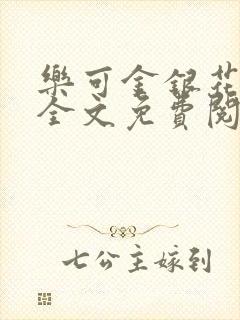 樂可金銀花
全文免費閱
七公主嫁到